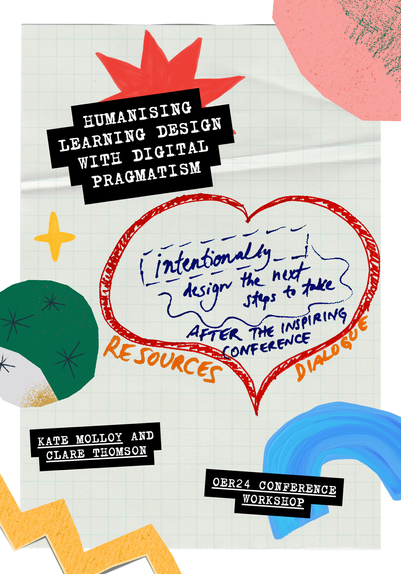 HUMANISING
LEARNING DESIGN
WITH DIGITAL
PRAGMATISM
intentionally
design the next
steps to take
AFTER THE INSPIRING
CONFERENCE
RESOURCES
DIALOGUE
KATE MOLLOY AND
CLARE THOMSON
OER24 CONFERENCE
WORKSHOP